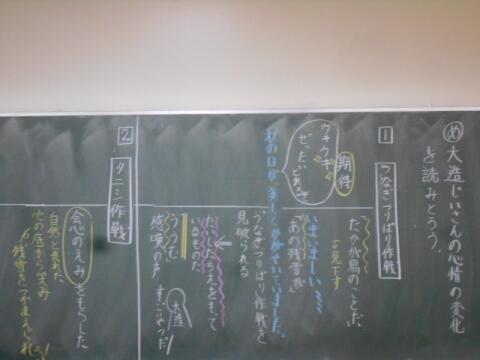 め 大造じいさんの心情の変化
を読みとろう。
1 うなぎつりばり作戦
たかが鳥のことだ
見下す
いまいましい
「あの残雪が」
期待
ウキウキ
秋の日が、美しくかがやいていました。
うなぎつりばり作戦を
見破られる
たいしたちえをもって
いるものだ
ううむ
感嘆の声
大造
2 タニシ作戦
会心のえみをもらした
自然と表れた
心の底から笑み